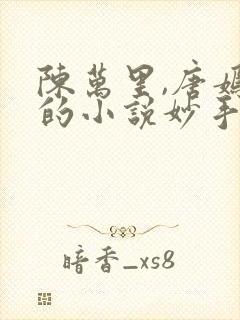 陳萬里,唐嫣
的小說妙手
暗香_xs8